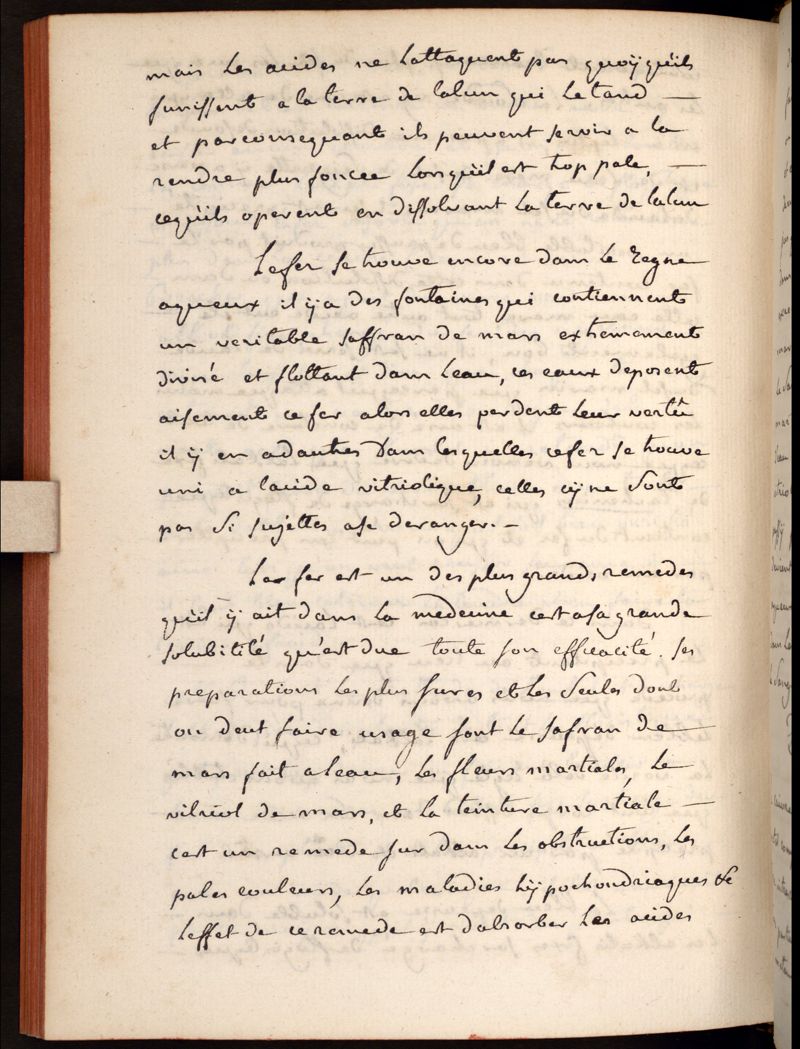 mais les acides ne lattaquent pas quoÿquils
sunissent a la terre de lalun qui le tand —
et parconsequant ils peuvent servir a la
rendre plus foncée lorsquil est trop pale, —
cequils operent en dissolvant la terre de lalun
Lefer se trouve encore dans le regne
aqueux il ÿ a des fontaines qui contiennent
un veritable saffran de mars extremement
divisé et flottant dans leau, ces eaux deposent
aisement ce fer alors elles perdent leur vertu
il ÿ en adautres dans lesquelles cefer se trouve
uni a lacide vitriolique, celles cÿ ne sont
pas si sujettes ase deranger. —
Le fer est un des plus grands remedes
quil ÿ ait dans la medecine cest asa grande
solubilité qu'est due toute son efficacité. ses
preparations les plus sures et les seules dont
on deut faire usage sont le safran de
mars fait aleau, les fleurs martiales, le
vitriol de mars, et la teinture martiale —
cest un remede sur dans les obstructions, les
pales couleurs, les maladies hÿpochondriaques &c
leffet de ce remede est dabsorber les acides